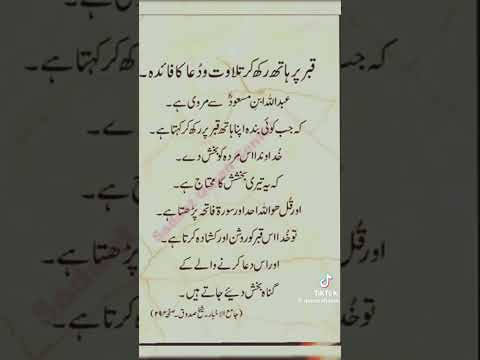 قبر پر ہاتھ رکھ کر تلاوت و دُعا کا فائدہ ۔
عبداللہ ابنِ مسعودؓ سے مروی ہے۔
کہ جب کوئی بندہ اپنا ہاتھ قبر پر رکھ کر کہتا ہے۔
خُداوندا اس مردہ کو بخش دے۔
کہ یہ تیری بخشش کا محتاج ہے۔
اور قُل ھو اللہ احد اور سورۃ فاتحہ پڑھتا ہے۔
تو خُدا اس قبر کو روشن اور کشادہ کرتا ہے۔
اور اس دعا کرنے والے کے
گناہ بخش دیئے جاتے ہیں۔
(جامع الاخبار۔ شیخ صدوق۔ صفحہ ۲۹۴)
TikTok